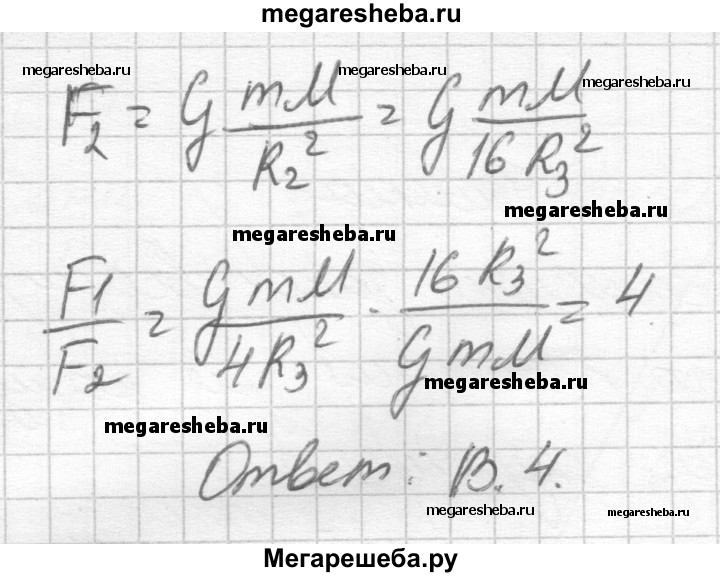 megaresheba.ru
megaresheba.ru megaresheba.ru megaresheba.ru
F₂ = G mM / R₂² = G mM / 16 R₃²
megaresheba.ru
megaresheba.ru
F₁ / F₂ = G mM / 4 R₃² · 16 R₃² / G mM = 4
megaresheba.ru
megaresheba.ru
Ответ: В. 4.
megaresheba.ru megaresheba.ru
Мегарешеба.ру